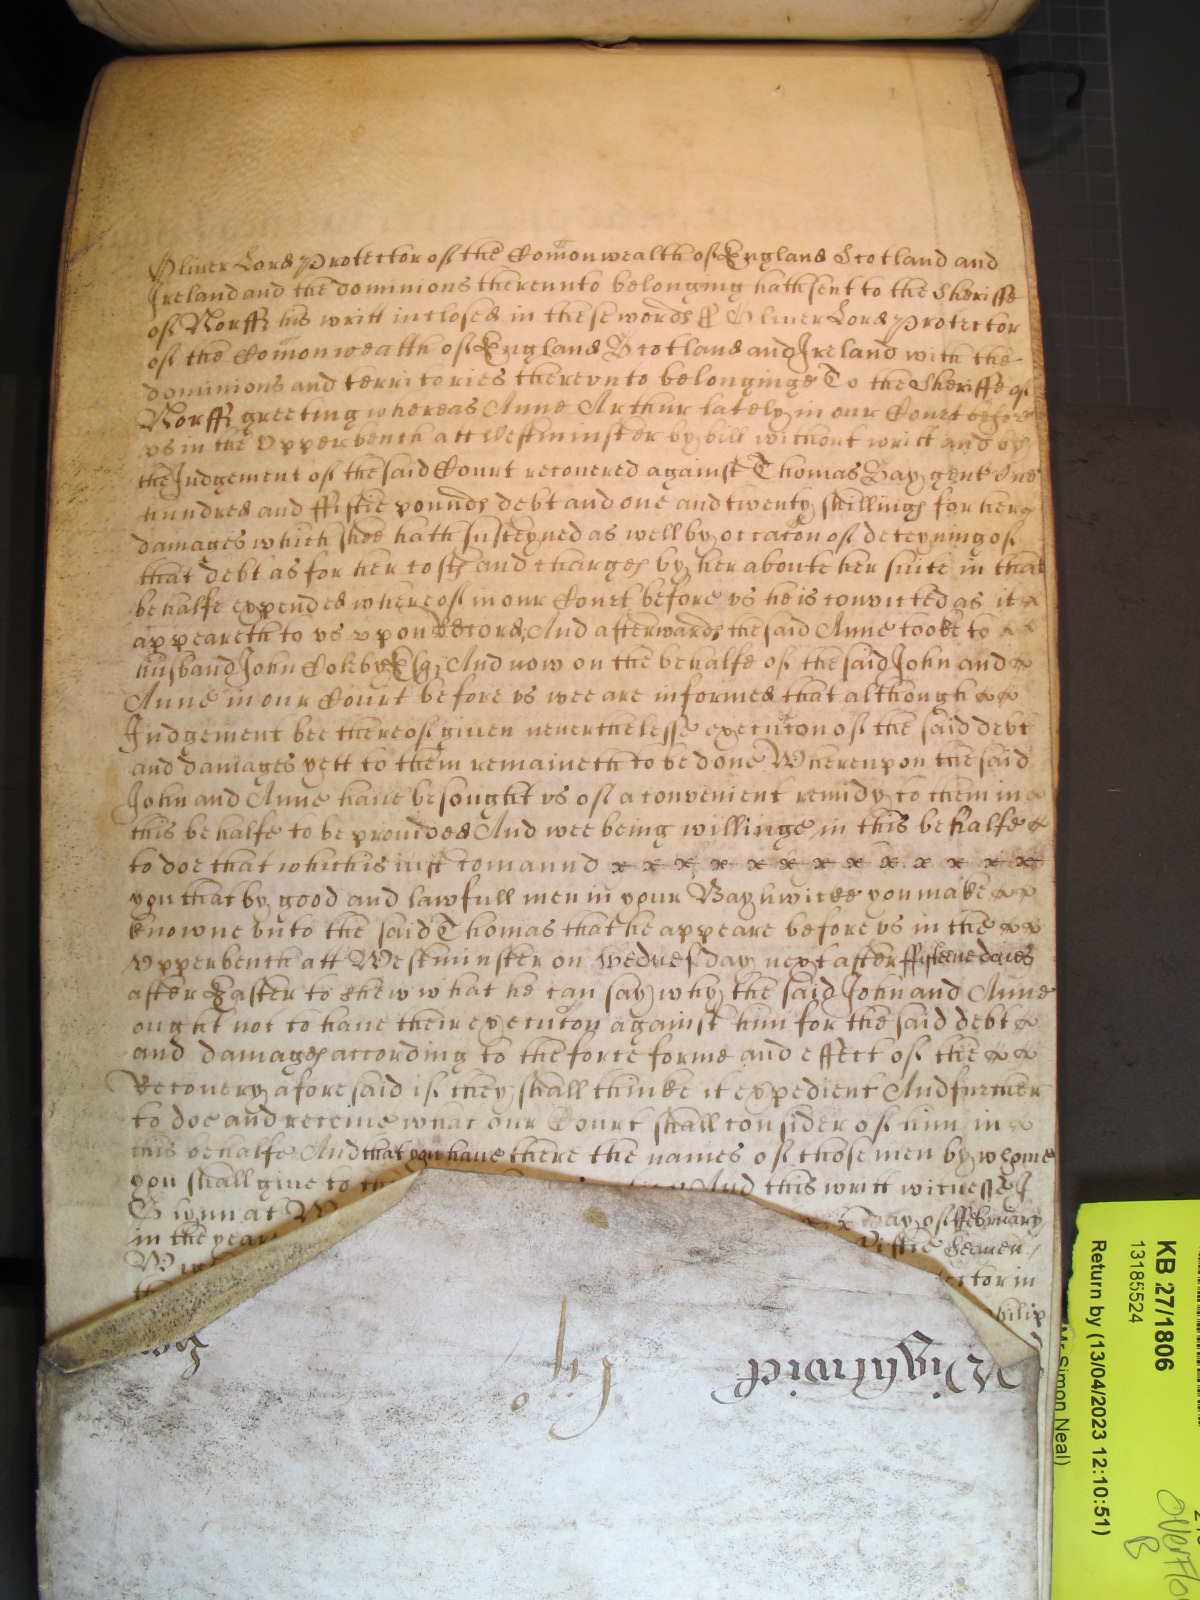 Oliver Lord Protector of the Com̃onwealth of England Scotland and
Ireland and the dominions thereunto belonging hath sent to the Sheriffe
of Norff his writt inclosed in these words ss Oliver Lord Protector
of the Com̃onwealth of England Scotland and Ireland with the
dominions and territories therevnto belonginge To the Sheriffe of
Norff greeting whereas Anne Arthur lately in our Court before
vs in the Vpperbench att Westminster by bill without writt and by
the Judgement of the said Court recouered against Thomas Bay gent One
hundred and ffiftie pounds debt and one and twenty shillings for her
damages which shee hath susteyned as well by occac̃on of deteyning of
that debt as for her costs and charges by her aboute her suite in that
behalfe expended whereof in our Court before vs he is convicted as it
appeareth to vs vpon Record, And afterwards the said Anne tooke to
husband John Coleby Esq, And now on the behalfe of the said John and
Anne in our Court before vs wee are informed that although
Judgement bee thereof giuen neuerthelesse execuc̃on of the said debt
and damages yett to them remaineth to be done Wherevpon the said
John and Anne haue besought vs of a convenient remidy to them in
this behalfe to be prouided And wee being willinge in this behalfe
to doe that which is iust comaund
you that by good and lawfull men in your Baylywicke you make
knowne vnto the said Thomas that he appeare before vs in the
Vpperbench att Westminster on wednesday next after fifteene daies
after Easter to shew what he can say why the said John and Anne
ought not to haue their execuc̃on against him for the said debt
and damages according to the force forme and effect of the
Recouery aforesaid if they shall thinke it expedient And further
to doe and receiue what our Court shall consider of him in
this behalfe And that you haue there the names of those men by whome
you shall giue to And this writt witnesse J
Glynn at day of ffebruary
in the yeare ffiftie Seauen
in
Philip
Wightwick
KB 27/1806
13185524
Return by (13/04/2023 12:10:51)
Mr Simon Neal)
Overflo
B